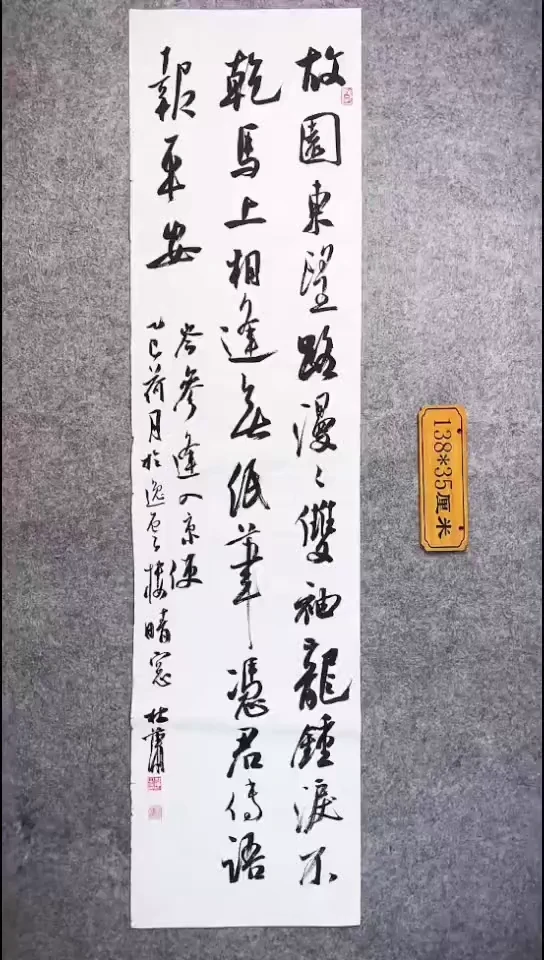 故園東望路漫〻雙袖龍鍾淚不
乾馬上相逢無紙筆憑君傳語
報平安
岑參逢入京使
乙巳荷月於逸雲樓晴窗 杜蕭
138*35厘米